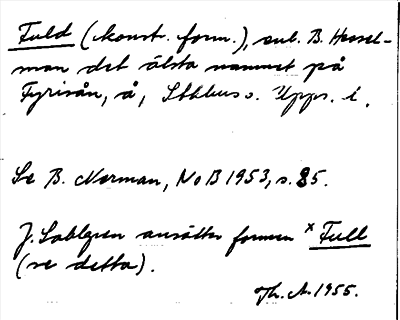 Fuld (konstr. form.), enl. B. Hessel-
man det älsta namnet på
Fyrisån, å, Sthlms o. Upps. l.
Se B. Norman, NoB 1953, s. 85.
J. Sahlgren ansätter formen ˣFull
(se detta).
Th. A. 1955.